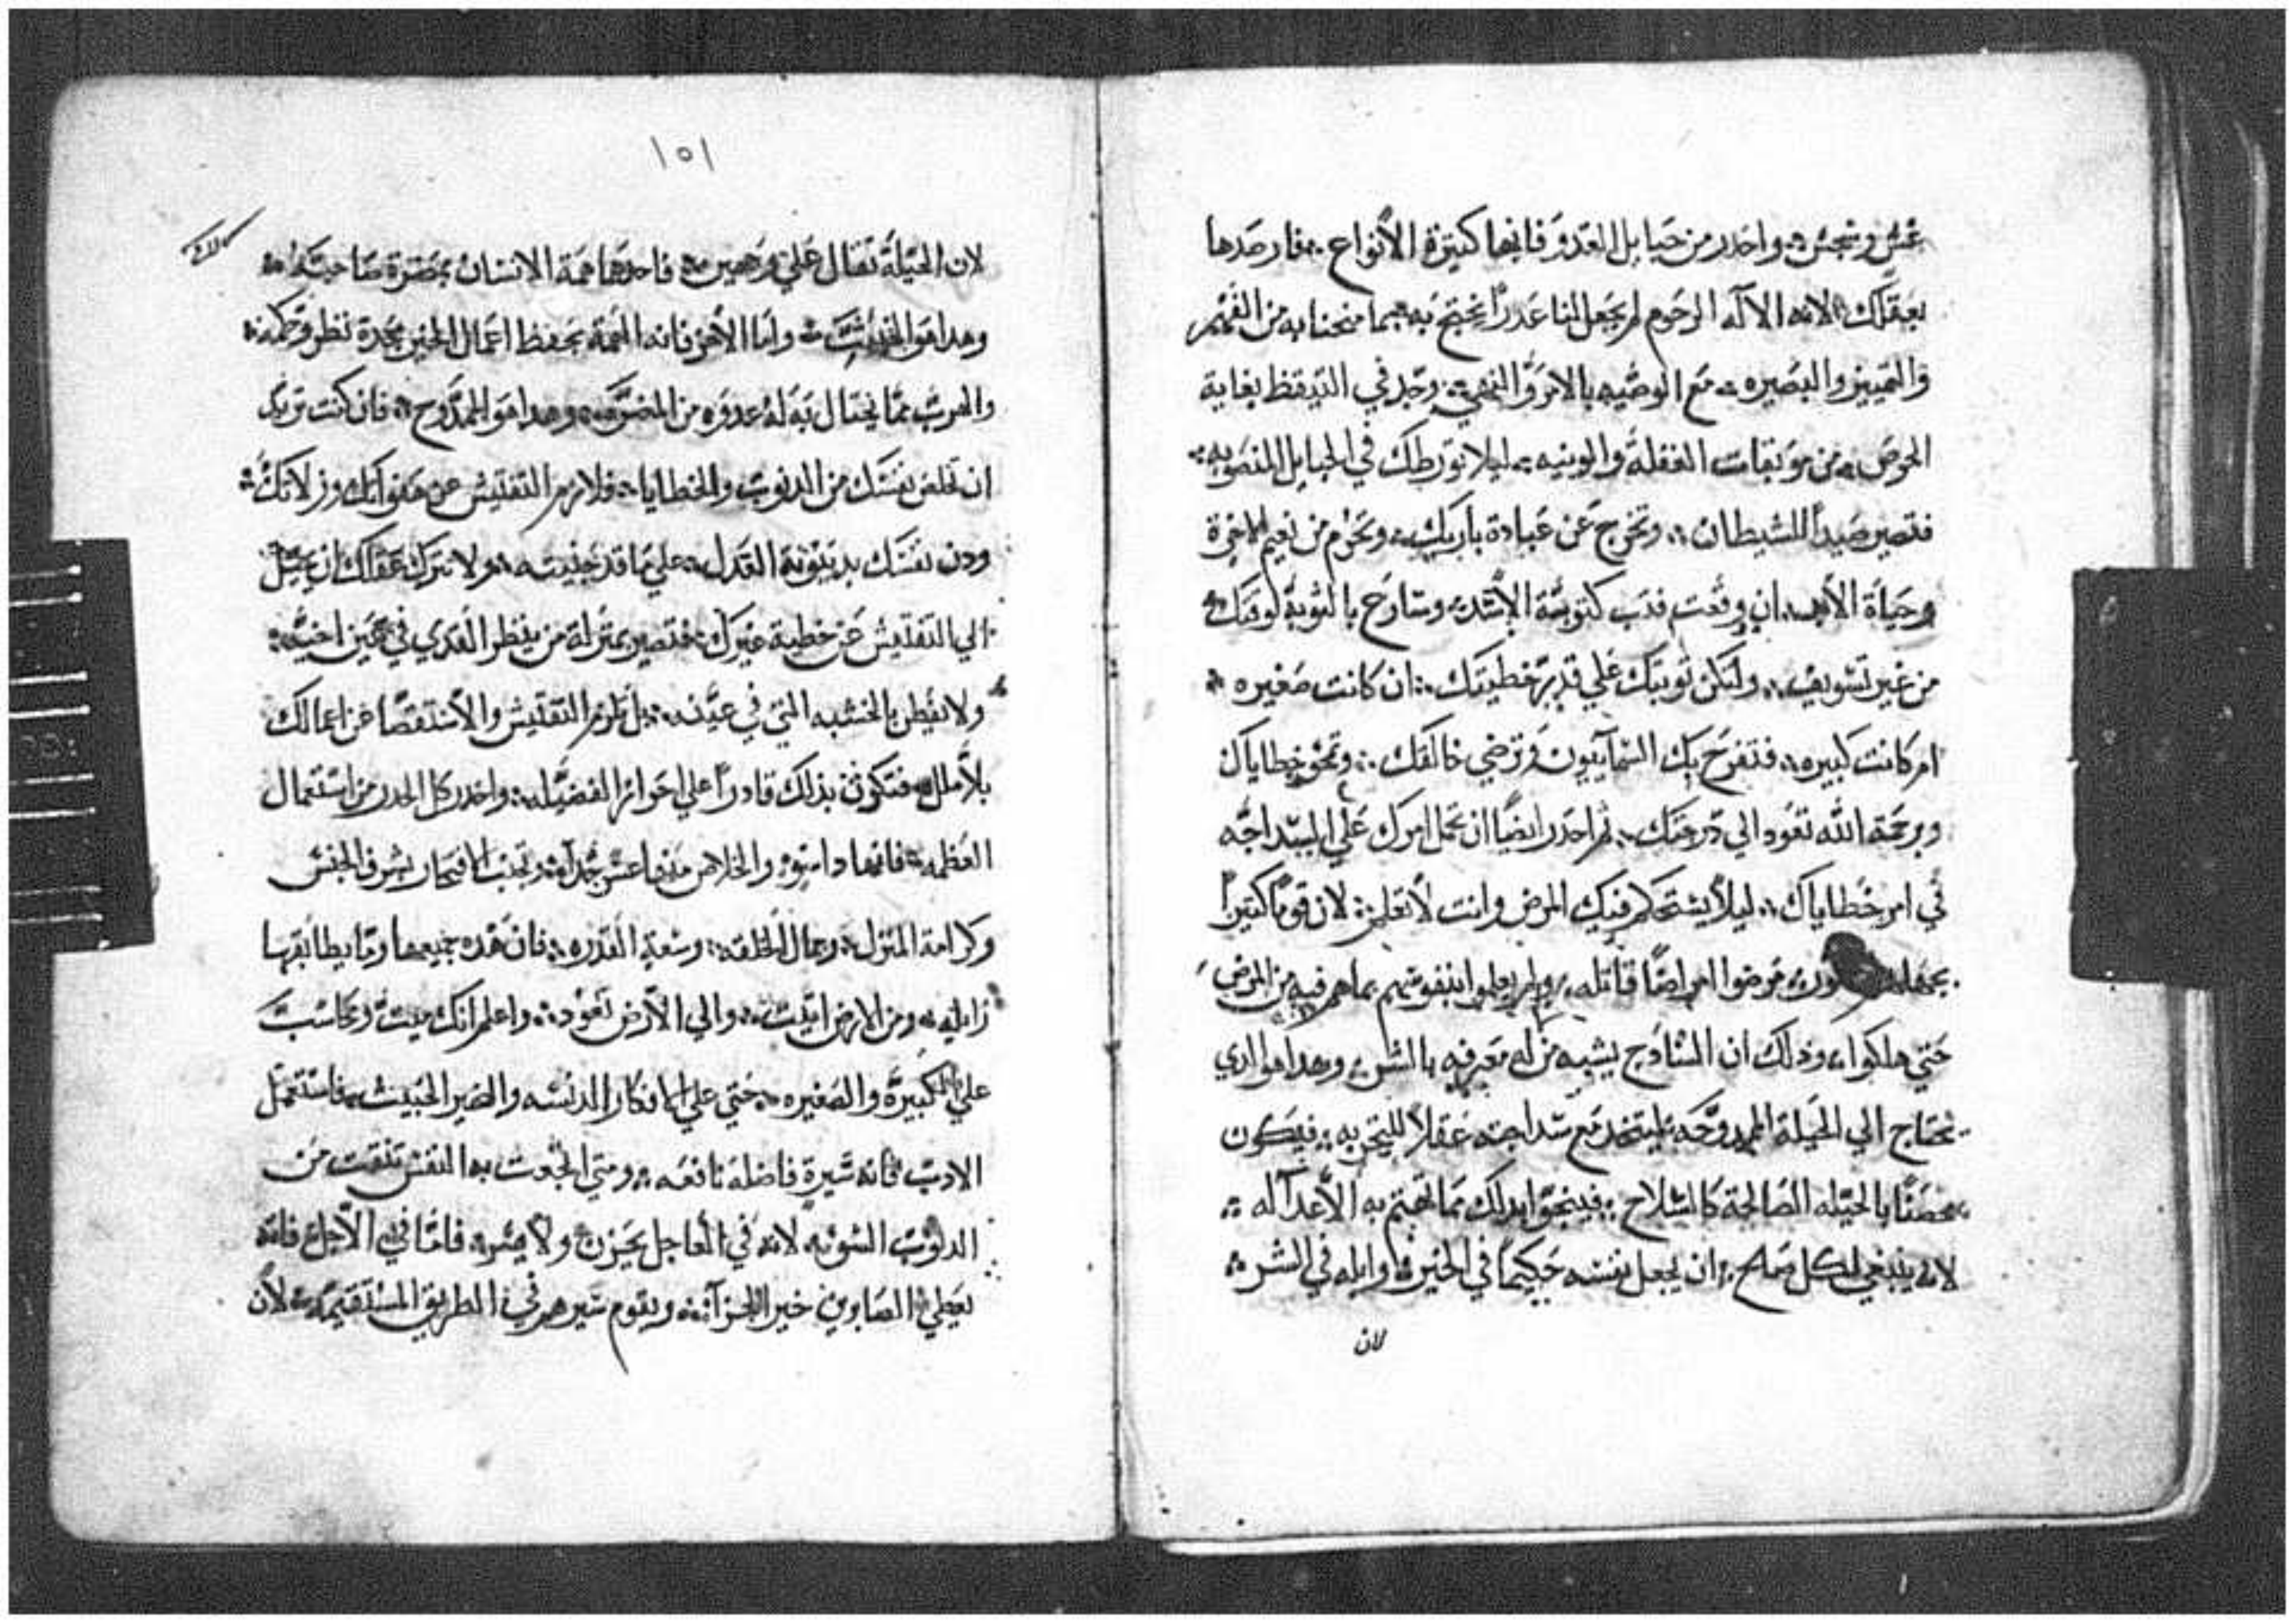 غش ونجس واحدر من حبايل العدو فانها كتيرة الأنواع فارصدها
بعقلك لانه الاله الرحوم لم يجعل لنا عدراً نحتج به فيما منحنا به من الفهم
والتمييز والبصيره مع الوصيه بالامر والنهي وجد في التيقظ بغاية
الحرص من موبقات الغفلة والونيه ليلا تورطك في الحبايل المنصوبه
فتصير صيداً للشيطان وتخرج عن عبادة باريك وتحرم من نعيم الاخرة
وحياة الأبد ان وقعت فتب كتوبة الأسد وسارع بالتوبة لوقتك
من غير تسويف ولتكن توبتك علي قدر خطيتك ان كانت صغيره
ام كانت كبيره فتفرح بك السمآييون وترضي خالقك وتمحو خطاياك
وبرحمة الله تعود الي درجتك ثم احدر ايضاً ان تحمل امرك علي السداجه
في امر خطاياك ليلا يستحكم فيك المرض وانت لا تعلم لان قوماً كتيراً
مرضوا امراضاً قاتله ولم يعلموا بنفوسهم بما هم فيه من المرض
حتي هلكوا ودلك ان السادج يشبه من له معرفه بالشر وهدا هو الدي
يحتاج الي الحيلة الممدوحه ليتخد مع سداجته عقلا للتحربه فيكون
محصناً بالحيله الصالحة كالسلاح فينجوا بدلك مما تهتم به الأعدآ له
لانه ينبغي لكل صالح ان يجعل نفسه حكيماً في الخير وابله في الشر
لان
١٥١
لان الحيلة تقال علي وجهين فاحدها همة الانسان بمضرة صاحبه
وهدا هو الخبيث واما الأخر فانه الهمة بحفظ اعمال الخير بحدة نظر وحكمه
والهرب مما يحتال به له عدوه من المضره وهدا هو الممدوح فان كنت تريد
ان تخلص نفسك من الدنوب والخطايا فلازم التفتيش عن هفواتك وزلاتك
ودن نفسك بدينونة العدل علي ما قد جنيته ولا تترك عقلك ان يميل
الي التفتيش عن خطية غيرك فتصير بمنزلة من ينظر القدي في عين اخيه
ولا يفطن بالخشبه التي في عينه بل تلزم التفتيش والأستقصا عن اعمالك
بلا ملل فتكون بذلك قادراً علي احراز الفضيله واحدر كل الحدر من استعمال
العظمه فانها دا سوء والخلاص منها عسر جدآ وتجنب الافتخار بشرف الجنس
وكرامة المنزل وجمال الخلقه وسعة القدره فان هده جميعها وما يطابقها
زايله ومن الارض اتيت والي الأرض تعود واعلم انك ميت وتحاسب
علي الكبيرة والصغيره حتي علي الافكار الدنسه والضمير الخبيث فاستعمل
الادب فانه سيرة فاضله نافعه ومتي اتجعت به النفس تنقت من
الدنوب السوء لانه في العاجل يحزن ولا يسر فاما في الآجل فانه
يعطي الصابرين خير الجزآ ويقوم سيرهم في الطريق المستقيمه لأن